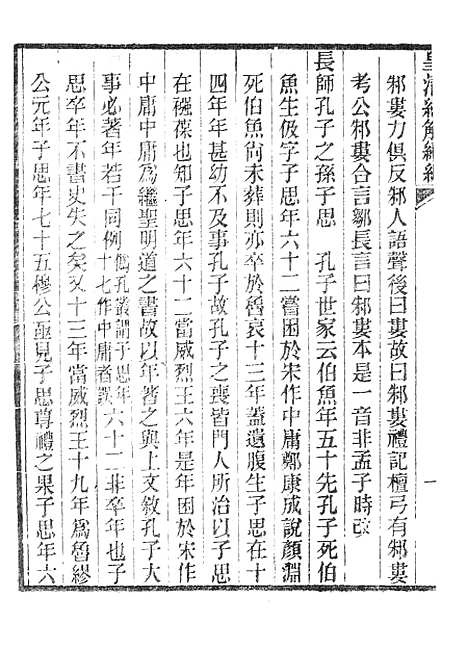 皇清經解續編
邾婁力俱反邾人語聲後曰婁故曰邾婁禮記檀弓有邾婁
考公邾婁合言鄒長言曰邾婁本是一音非孟子時改
長師孔子之孫子思 孔子世家云伯魚年五十先孔子死伯
魚生伋字子思年六十二嘗困於宋作中庸鄭康成說顏淵
死伯魚尚未葬則亦卒於魯哀十三年蓋遺腹生子思在十
四年年甚幼不及事孔子故孔子之喪皆門人所治以子思
在襁葆也知子思年六十二當威烈王六年是年困於宋作
中庸中庸爲繼聖明道之書故以年著之與上文敘孔子大
事必著年若干同例僞孔叢謂子思年十七作中庸者誤六十二非卒年也子
思卒年不書史失之矣又十三年當威烈王十九年爲魯繆
公元年子思年七十五穆公亟見子思尊禮之果子思年六